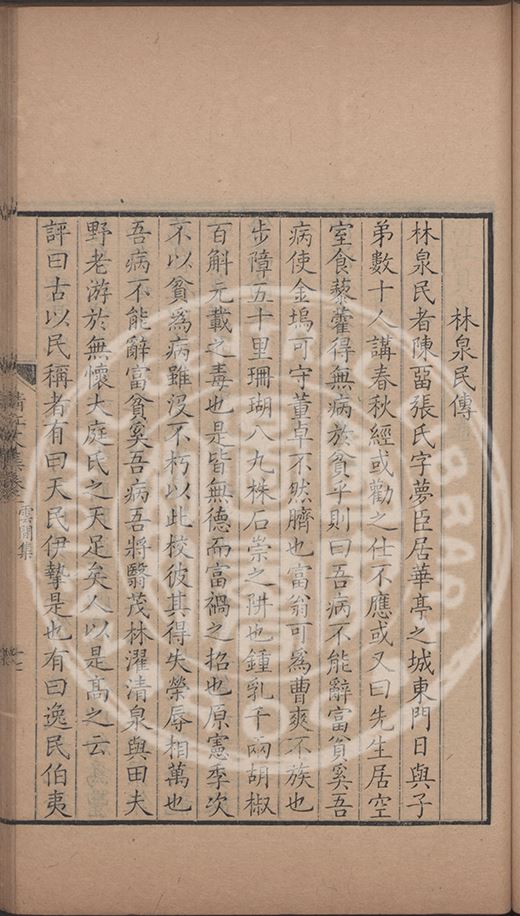 林泉民傳
林泉民者陳畱張氏字夢臣居華亭之城東門日與子
弟數十人講春秋經或勸之仕不應或又曰先生居空
室食藜藿得無病於貧乎則曰吾病不能辭富貧奚吾
病使金塢可守董卓不然臍也富翁可爲曹爽不族也
步障五十里珊瑚八九株石崇之阱也鍾乳千兩胡椒
百斛元載之毒也是皆無德而富禍之招也原憲季次
不以貧爲病雖沒不朽以此校彼其得失榮辱相萬也
吾病不能辭富貧奚吾病吾將翳茂林濯清泉與田夫
野老游於無懷大庭氏之天足矣人以是高之云
評曰古以民稱者有曰天民伊摯是也有曰逸民伯夷
雲閒集